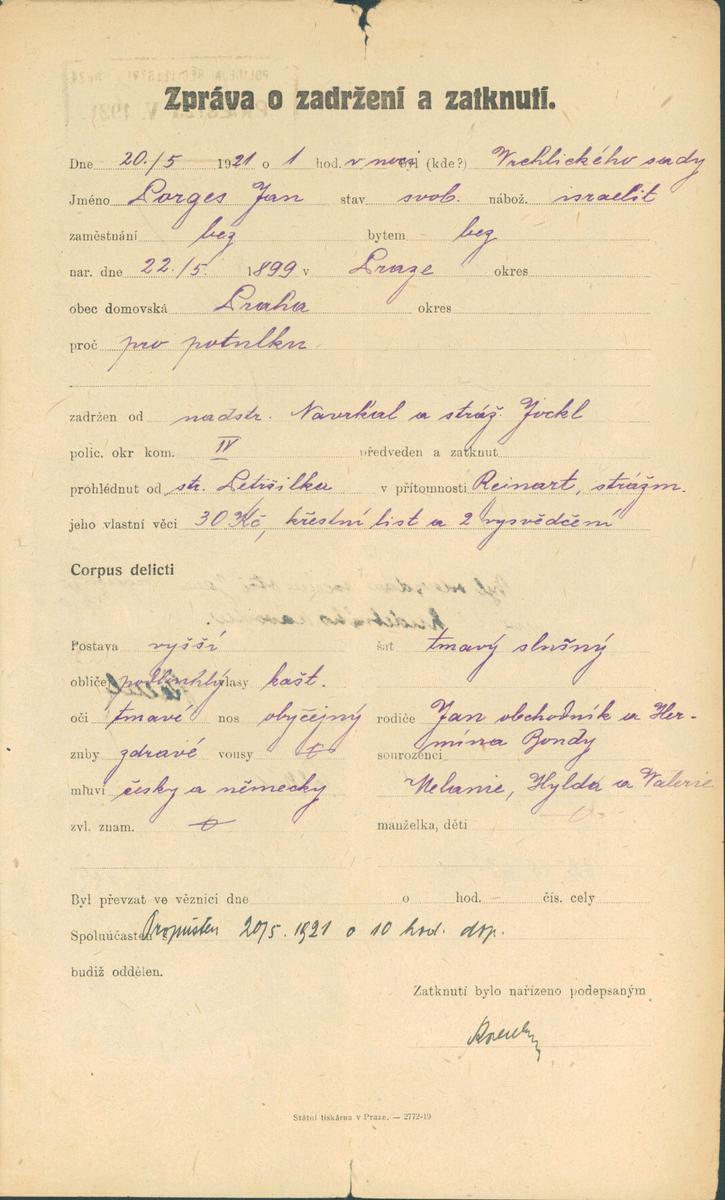 Zpráva o zadržení a zatknutí.
Dne 20./5 1921 o 1 hod. v noci byl (kde?) Vrchlického sady
Jméno Porges Jan stav svob. nábož. israelit
zaměstnání bez bytem bez
nar. dne 22./5. 1899 v Praze okres
obec domovská Praha okres
proč pro potulku
zadržen od nadstr. Navrkal a stráž. Jockl
polic. okr kom. IV předveden a zatknut
prohlédnut od str. v přítomnosti Reinart, strážm.
jeho vlastní věci 30 Kč, křestní list a 2 vysvědčení
Corpus delicti
Postava vyšší šat tmavý slušný
obličej podlouhlý vlasy kašt.
oči tmavé nos obyčejný rodiče Jan obchodník a Her-
mína Bondy
zuby zdravé vousy sourozenci
mluví česky a německy Melanie, Hylda a Valerie
zvl. znam. manželka, děti
Byl převzat ve věznici dne o hod. čís. cely
Spoluúčasten s Propuštěn 20/5. 1921 o 10 hod. dop.
budiž oddělen.
Zatknutí bylo nařízeno podepsaným
Státní tiskárna v Praze. — 2772-19